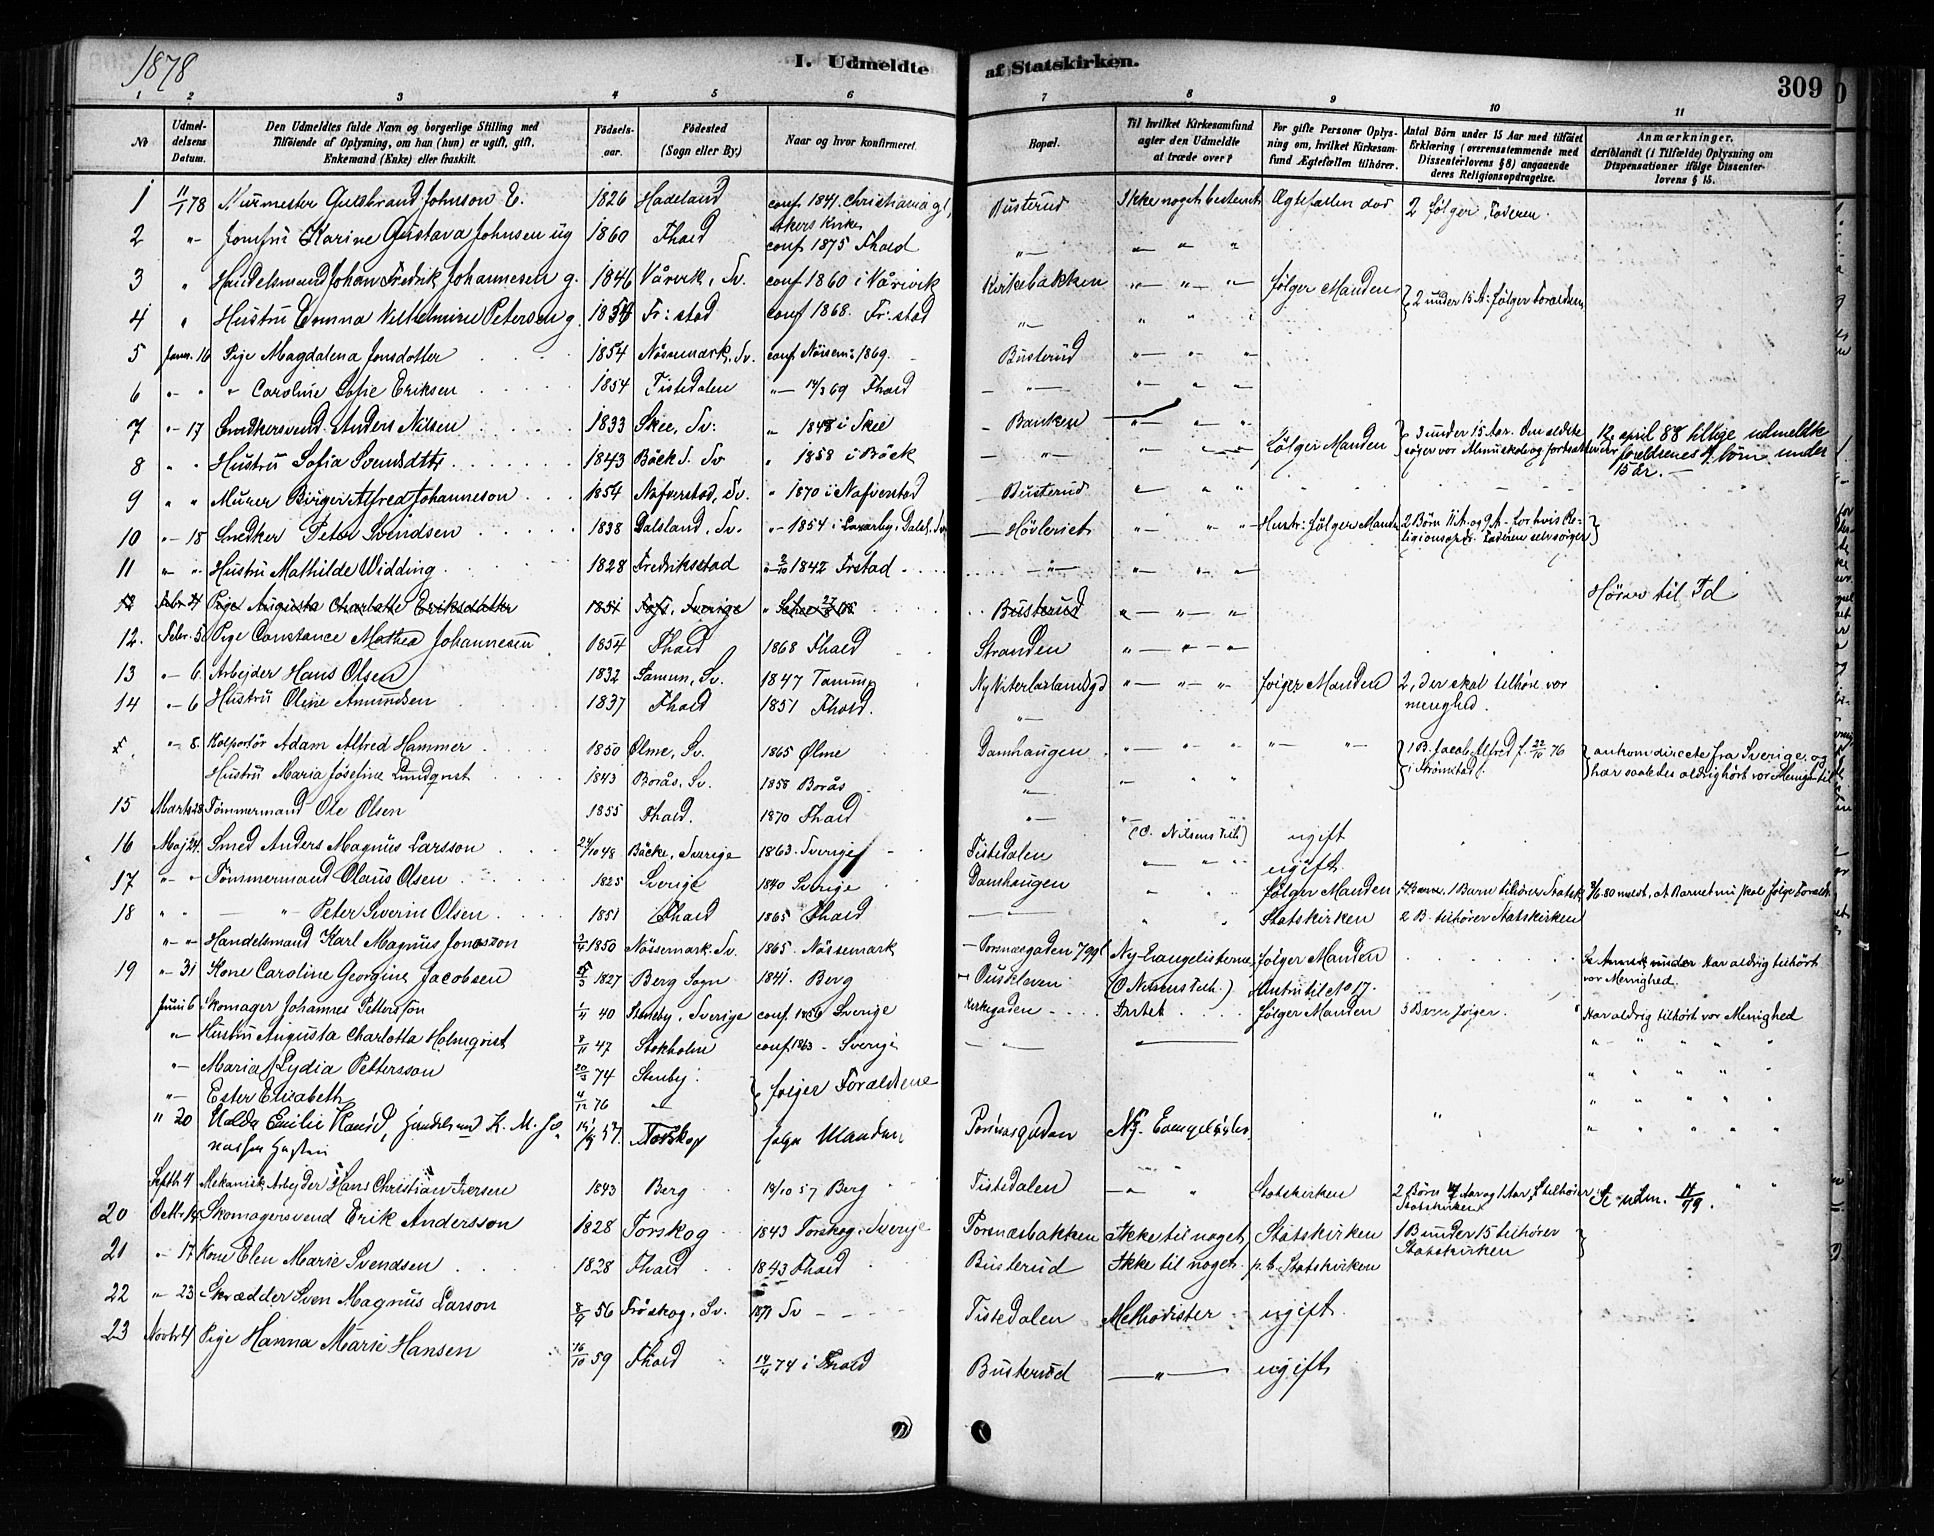 1878
I. Udmeldte af Statskirken.
309
1 2 3 4 5 6 7 8 9 10 11
No
Udmeldelsens Datum.
Den Udmeldtes fulde Navn og borgerlige Stilling med Tilføiende af Oplysning, om han (hun) er ugift, gift, Enkemand (Enke) eller fraskilt.
Fødselsaar.
Fødested (Sogn eller By.)
Naar og hvor konfirmeret.
Bopæl.
Til hvilket Kirkesamfund agter den Udmeldte at træde over?
For gifte Personer Oplysning om, hvilket Kirkesamfund Ægtefællen tilhører.
Antal Børn under 15 Aar med tilføiet Erklæring (overensstemmende med Dissenterlovens § 8) angaaende deres Religionsopdragelse.
Anmærkninger, deriblandt (i Tilfælde) Oplysning om Dispensationer ifølge Dissenterlovens § 15.
1 11/1 78 Murmester Gulbrand Johnson E. 1826 Hadeland conf 1841 Christiania gl. Akers Kirke Busterud Ikke noget bestemt Ægtefællen død 2 følger Faderen.
2 " Jomfru Karine Gustava Johnsen ug 1860 Fhald conf 1875 Fhald " " " "
3 " Handelsmand Johan Fredrik Johannesen g. 1846 Vårvik, Sv. conf 1860 i Vårvik Kirkebakken " " " følger Manden } 2 under 15 A: følger Forældrene
4 " Hustru Emma Vilhelmine Petersen g. 1850 Fr:stad conf 1868. Fr:stad " " " "
5 Janr. 16 Pige Magdalena Jonsdotter 1854 Nössemark, Sv. conf Nössem: 1869. Busterud " " "
6 " " " Caroline Sofie Eriksen 1854 Tistedalen " 14/3 69 Fhald " " " "
7 " 17 Snedkersvend Anders Nilsen 1833 Skee, Sv: " 1848 i Skee Banken " " " { 3 under 15 Aar. Den ældste søger vor Almueskole og fortsætter der 12 april 88 tillige udmeldte forældrenes 4 børn under 15 år.
8 " " Hustru Sofia Svensdtr 1843 Bäck S. Sv " 1858 i Bäck " " " følger Manden
9 " " Murer Birger Alfred Johanneson 1854 Nafverstad, Sv. " 1870 i Nafverstad Busterud " " "
10 " 18 Snedker Peter Svendsen 1838 Dalsland, Sv. " 1854 i Dalsl. Sv Høvleriet " " " Hustr: følger Manden 2 Børn 11 A. og 9 A. for hvis Religionsopdr. Faderen selv sørger }
11 " " Hustru Mathilde Widding 1828 Fredriksstad " 2/10 1842 Frstad " " " "
12 Febr 4 Pige Augusta Charlotte Eriksdatter 1851 Sverige Busterud " " " Hører til Id
12. Febr. 5 Pige Constance Mathea Johannesen 1854 Fhald 1868 Fhald Stranden " " "
13 " 6. Arbejder Hans Olsen 1832 Tanum, Sv. 1847 Tanum " " " følger Manden 2, der skal tilhøre vor menighed.
14 " 6 Hustru Oline Amundsen 1837 Fhald 1851 Fhald. "
" 8. Kolportör Adam Alfred Hammer 1850 Ölme, Sv. 1865 Ölme Damhaugen " " " " " { 1 B. Jacob Alfred f. 22/10 76 i Strømstad. { ankom directe fra Sverige og har saaledes aldrig hørt vor Menighed til
Hustru Maria Josefine Lundqvist 1843 Borås, Sv. 1858 Borås " " " "
15 Marts 28 Tömmermand Ole Olsen 1855 Fhald. 1870 Fhald " " (O. Nilsens Tilh)
16 Maj 24. Smed Anders Magnus Larsson 24/10 48 Bäcke, Sverige 1863. Sverige Tistedalen " " " ugift
17 " " Tömmermand Olaus Olsen 1825 Sverige 1840 Sverige Damhaugen " " ugift følger Manden 1 Barn tilhører Statsk 80 meldt, at Barnet nu skal følge Forældr.
18 " " " Peter Severin Olsen 1851 Fhald 1865 Fhald " " Statskirken 2 B. tilhører Statskirken
" " Handelsmand Karl Magnus Jonasson 1850 Nössemark. Sv. 1865. Nössemark Porsnæsgaden Ny-Evangelisterne følger Manden
19 " 31 Kone Caroline Georgine Jacobsen 1827 Berg Sogn 1841. Berg (O Nilsens Tilh.) Hustru til No 17. Har aldrig tilhört vor Menighed.
Juni 6 Skomager Johannes Pettersson 1/11 40 Steneby, Sverige conf. 1856 Sverige Kirkegaden følger Manden 3 Børn følger. Har aldrig tilhört vor Menighed
" Hustru Augusta Charlotta Holmqvist 8/11 47 Stokholm conf 1863 - Sverige " " " " "
" Maria Lydia Pettersson 20/3 74 Stenby. } følger Forældrene " " " " "
" Ester Elizabeth 4/12 76 " " " " " "
" 20 Hulda Emilie Handelsmd K. M. Jonassen Hustru 57. Torskog følger Manden Porsnæsgaden Ny. Evangelister " " " " "
Septb 4 Mekanisk Arbejder Hans Christian Iversen 1843 Berg 18/10 57 Berg Tistedalen " " Statskirken 2 Børn 4 Aar og 1 Aar, tilhører Statskirken udm. 79.
20 Octbr. Skomagersvend Erik Andersson 1828 Torskog 1843 Torskog, Sverige Porsnæsbakken Ikke til noget Statskirken 1 B under 15 tilhører Statskirken }
21 " 17 Kone Elen Marie Svendsen 1828 Fhald 1843 Fhald Busterud Ikke til noget p. t. Statskirken
22 " 23 Skrædder Sven Magnus Larson 8/9 56 Fröskog, Sv. 1871 Sv Tistedalen Methodister ugift.
23 Novbr 4 Pige Hanna Marie Hansen 16/10 59 Fhald 14/4 74 i Fhald Busterud " ugift